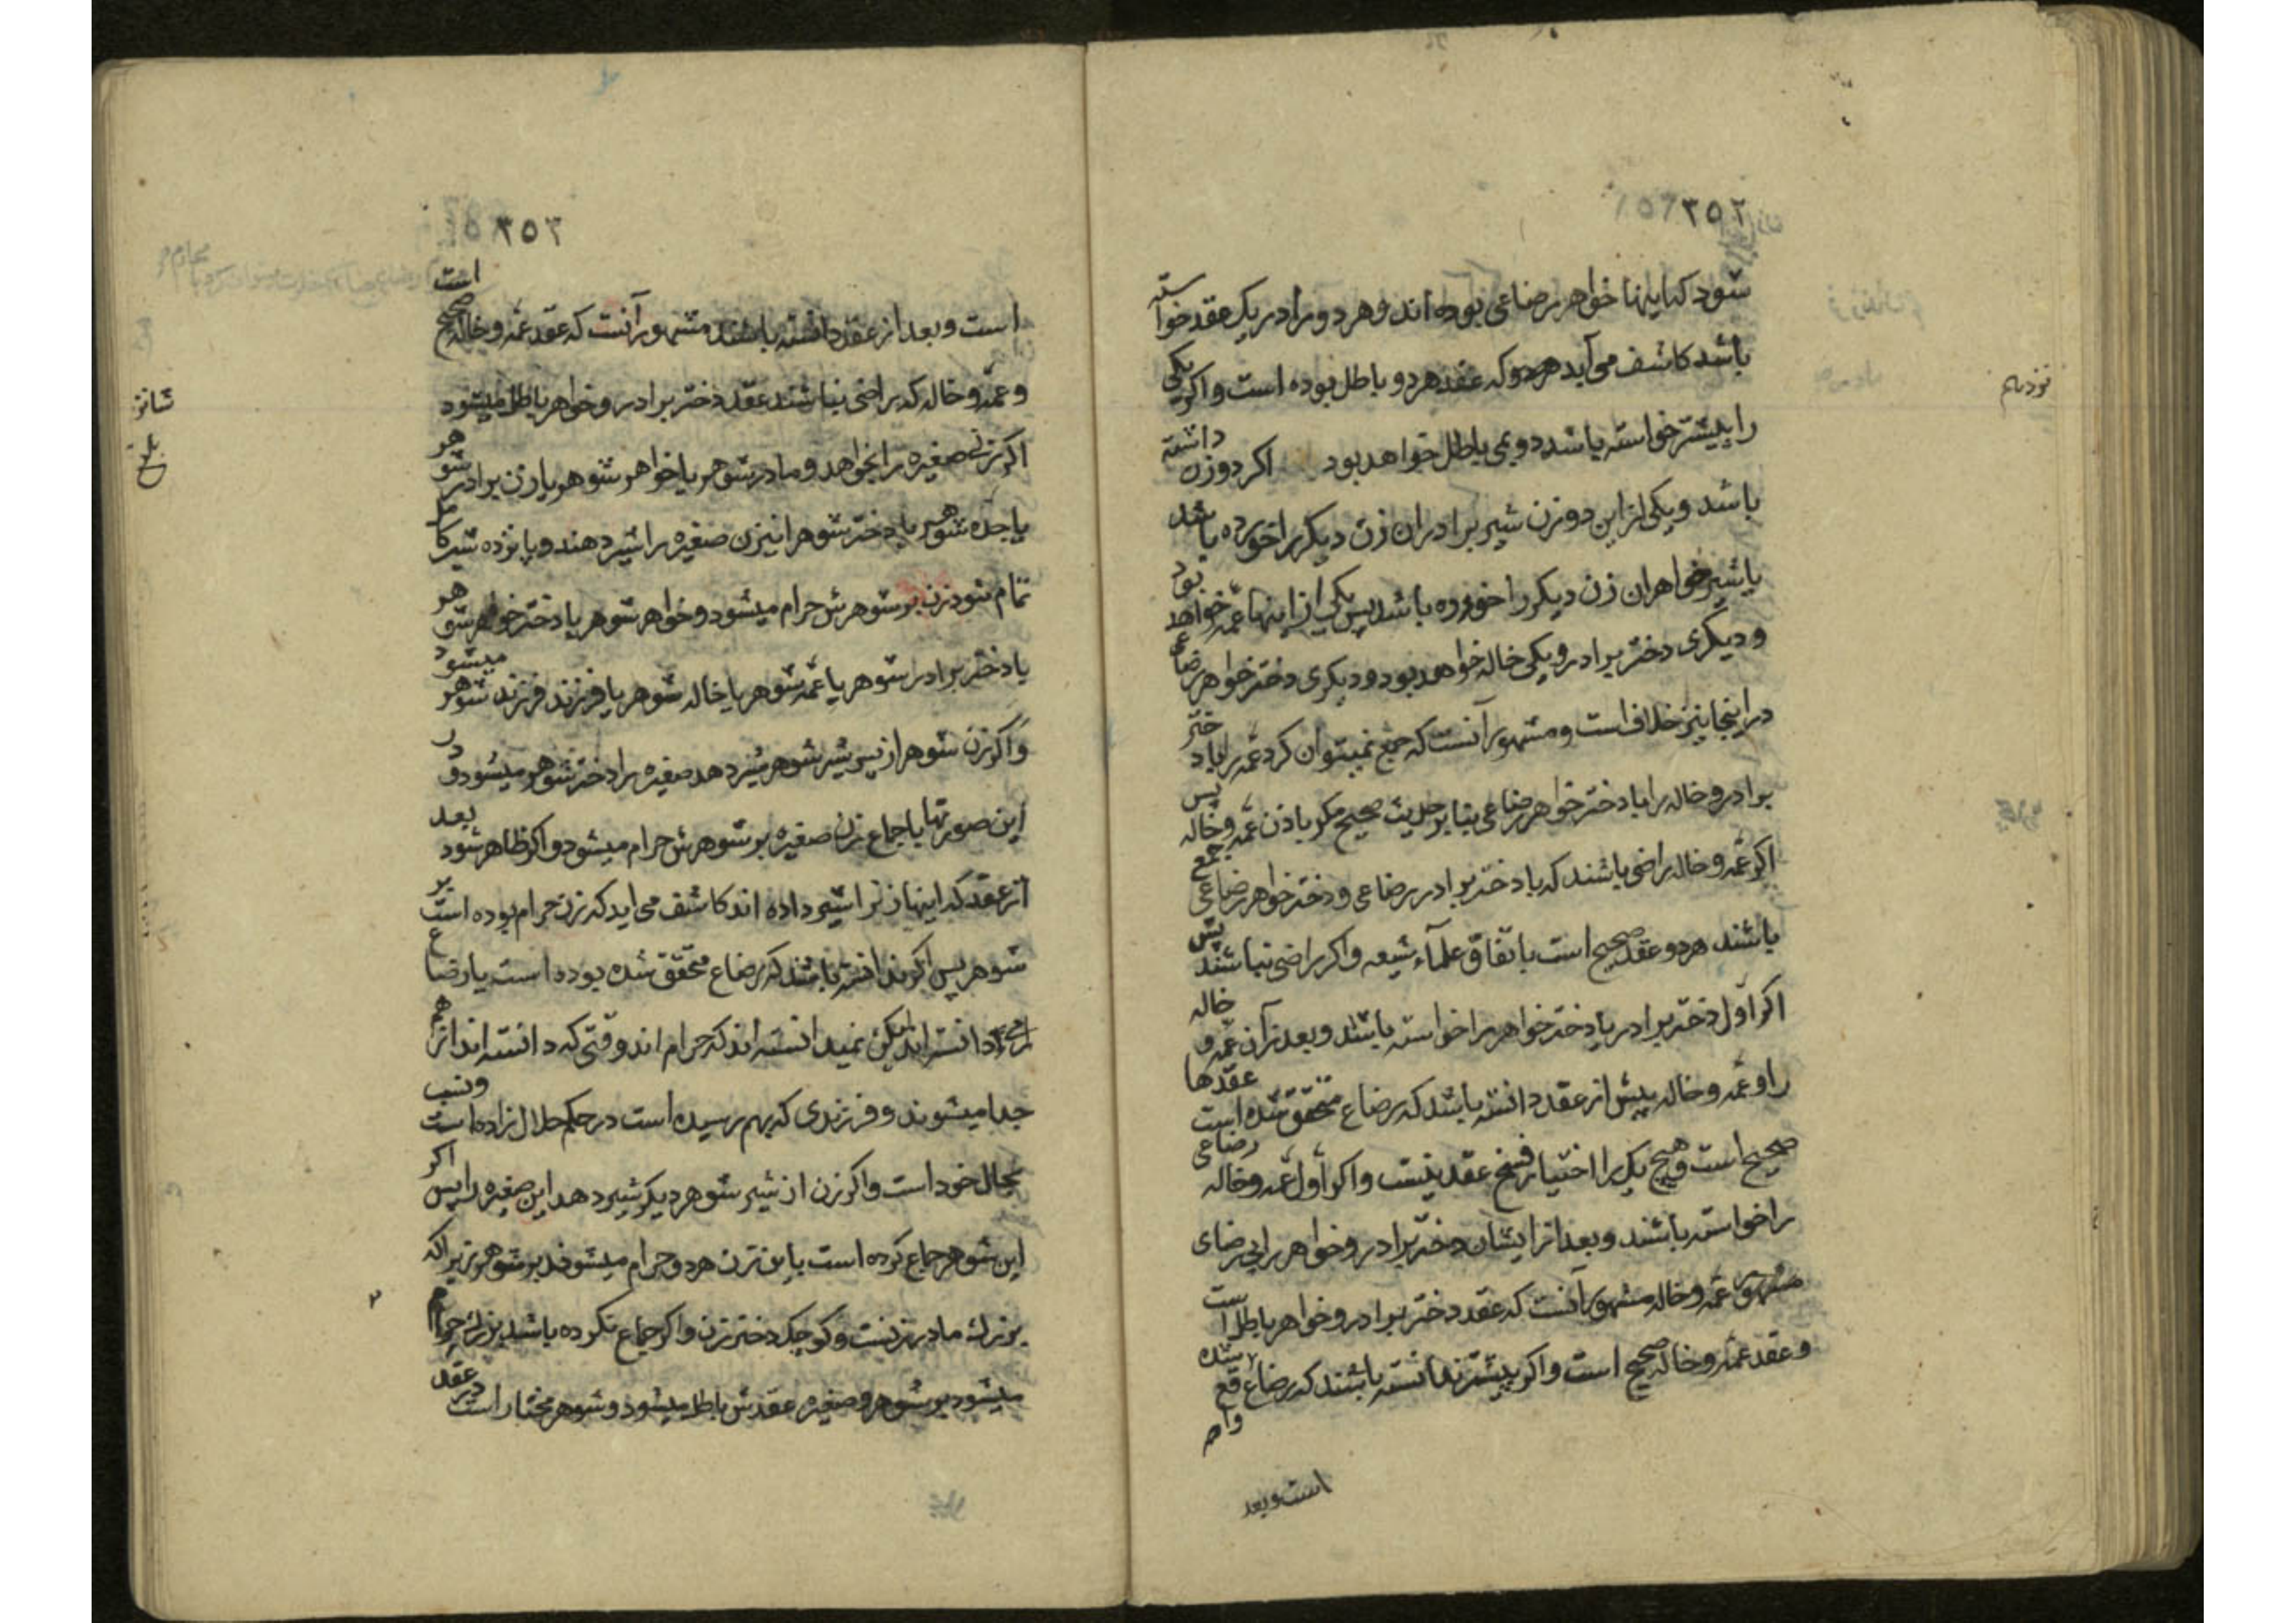 ۲۵۲
شود که اینها خواهر رضاعی بوده اند و هر دو را در یک عقد خواسته
باشد کاشف می آید هردو که عقد هردو باطل بوده است و اکر یکی
را پیشتر خواسته باشد دویمی باطل خواهد بود اکر دو زن داشته
باشد و یکی از این دو زن شیر برادران زن دیکر را خورده باشد
یا شیر خواهران زن دیکر را خورده باشد پس یکی از اینها عمه خواهد بود
و دیکری دختر برادر و یکی خاله خواهد بود و دیکری دختر خواهر رضاعی
در اینجا نیز خلاف است و مشهور آنست که جمع نمیتوان کرد عمه را با دختر
برادر و خاله را با دختر خواهر رضاعی بنا بر حدیث صحیح مکر باذن عمه و خاله پس
اکر عمه و خاله راضی باشند که با دختر برادر رضاعی و دختر خواهر رضاعی جمع
باشند هردو عقد صحیح است باتفاق علمآء شیعه و اکر راضی نباشند پس
اکر اول دختر برادر یا دختر خواهر را خواسته باشد و بعد از آن عمه و خاله
را و عمه و خاله پیش از عقد دانسته باشد که رضاع متحقق شده است عقدها
صحیح است و هیچ یک را اختیار فسخ عقد نیست و اکر اول عمه و خاله رضاعی
را خواسته باشند و بعد از ایشان دختر برادر و خواهر را بی رضای
عمه و خاله مشهور آنست که عقد دختر برادر و خواهر باطل است
و عقد عمه و خاله صحیح است و اکر پیشتر ندانسته باشند که رضاع واقع شده
است و بعد
۳۵۳
است و بعد از عقد دانسته باشند مشهور آنست که عقد عمه و خاله صحیح است
و عمه و خاله که راضی نباشند عقد دختر برادر و خواهر باطل میشود
اکر زنی صغیره را بخواهد و مادر شوهر یا خواهر شوهر یا زن برادر شوهر
یا جده شوهر یا دختر شوهر این زن صغیره را شیر دهند و پانزده شیر کامل
تمام شود زن بر شوهرش حرام میشود و خواهر شوهر یا دختر خواهر شوهر
یا دختر برادر شوهر یا عمه شوهر یا خاله شوهر یا فرزند فرزند شوهر میشود
و اکر زن شوهر از شیر شوهر شیر دهد صغیره را دختر شوهر میشود و در
این صورتها باجماع زن صغیره بر شوهرش حرام میشود و اکر ظاهر شود بعد
از عقد که اینها زن را شیر داده اند کاشف می اید که زن حرام بوده است بر
شوهر پس اکر ندانسته باشند که رضاع متحقق شده بوده است یا رضاع
را دانسته اند لیکن نمیدانسته اند که حرام اند وقتی که دانسته اند از هم
جدا میشوند و فرزندی که بهم رسیده است در حکم حلال زاده است و نسب
بحال خود است و اکر زن از شیر شوهر دیکر شیر دهد این صغیره را پس اکر
این شوهر جماع کرده است باین زن هردو حرام میشوند بر شوهر زیرا که
بزرک مادر زنست و کوچک دختر زن و اکر جماع نکرده باشد بزرک حرام
میشود بر شوهر و صغیره عقدش باطل میشود و شوهر مختار است در عقد